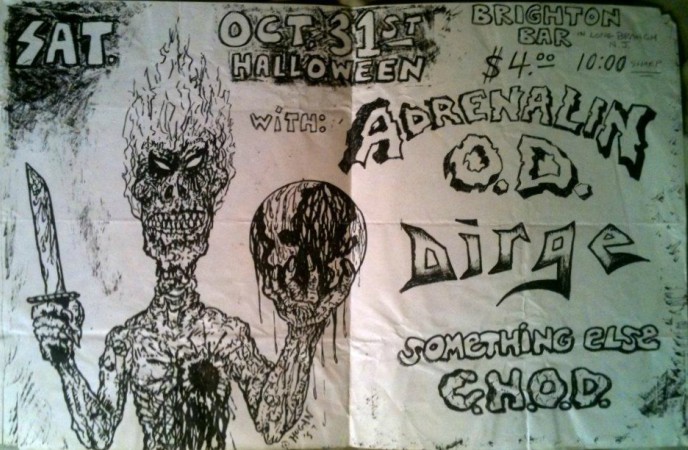 SAT.
OCT. 31ST
HALLOWEEN
BRIGHTON
BAR IN LONG BRANCH
N.J.
$4.00 10:00
WITH:
ADRENALIN
O.D.
Dirge
SOMETHING ELSE
C.H.O.D.